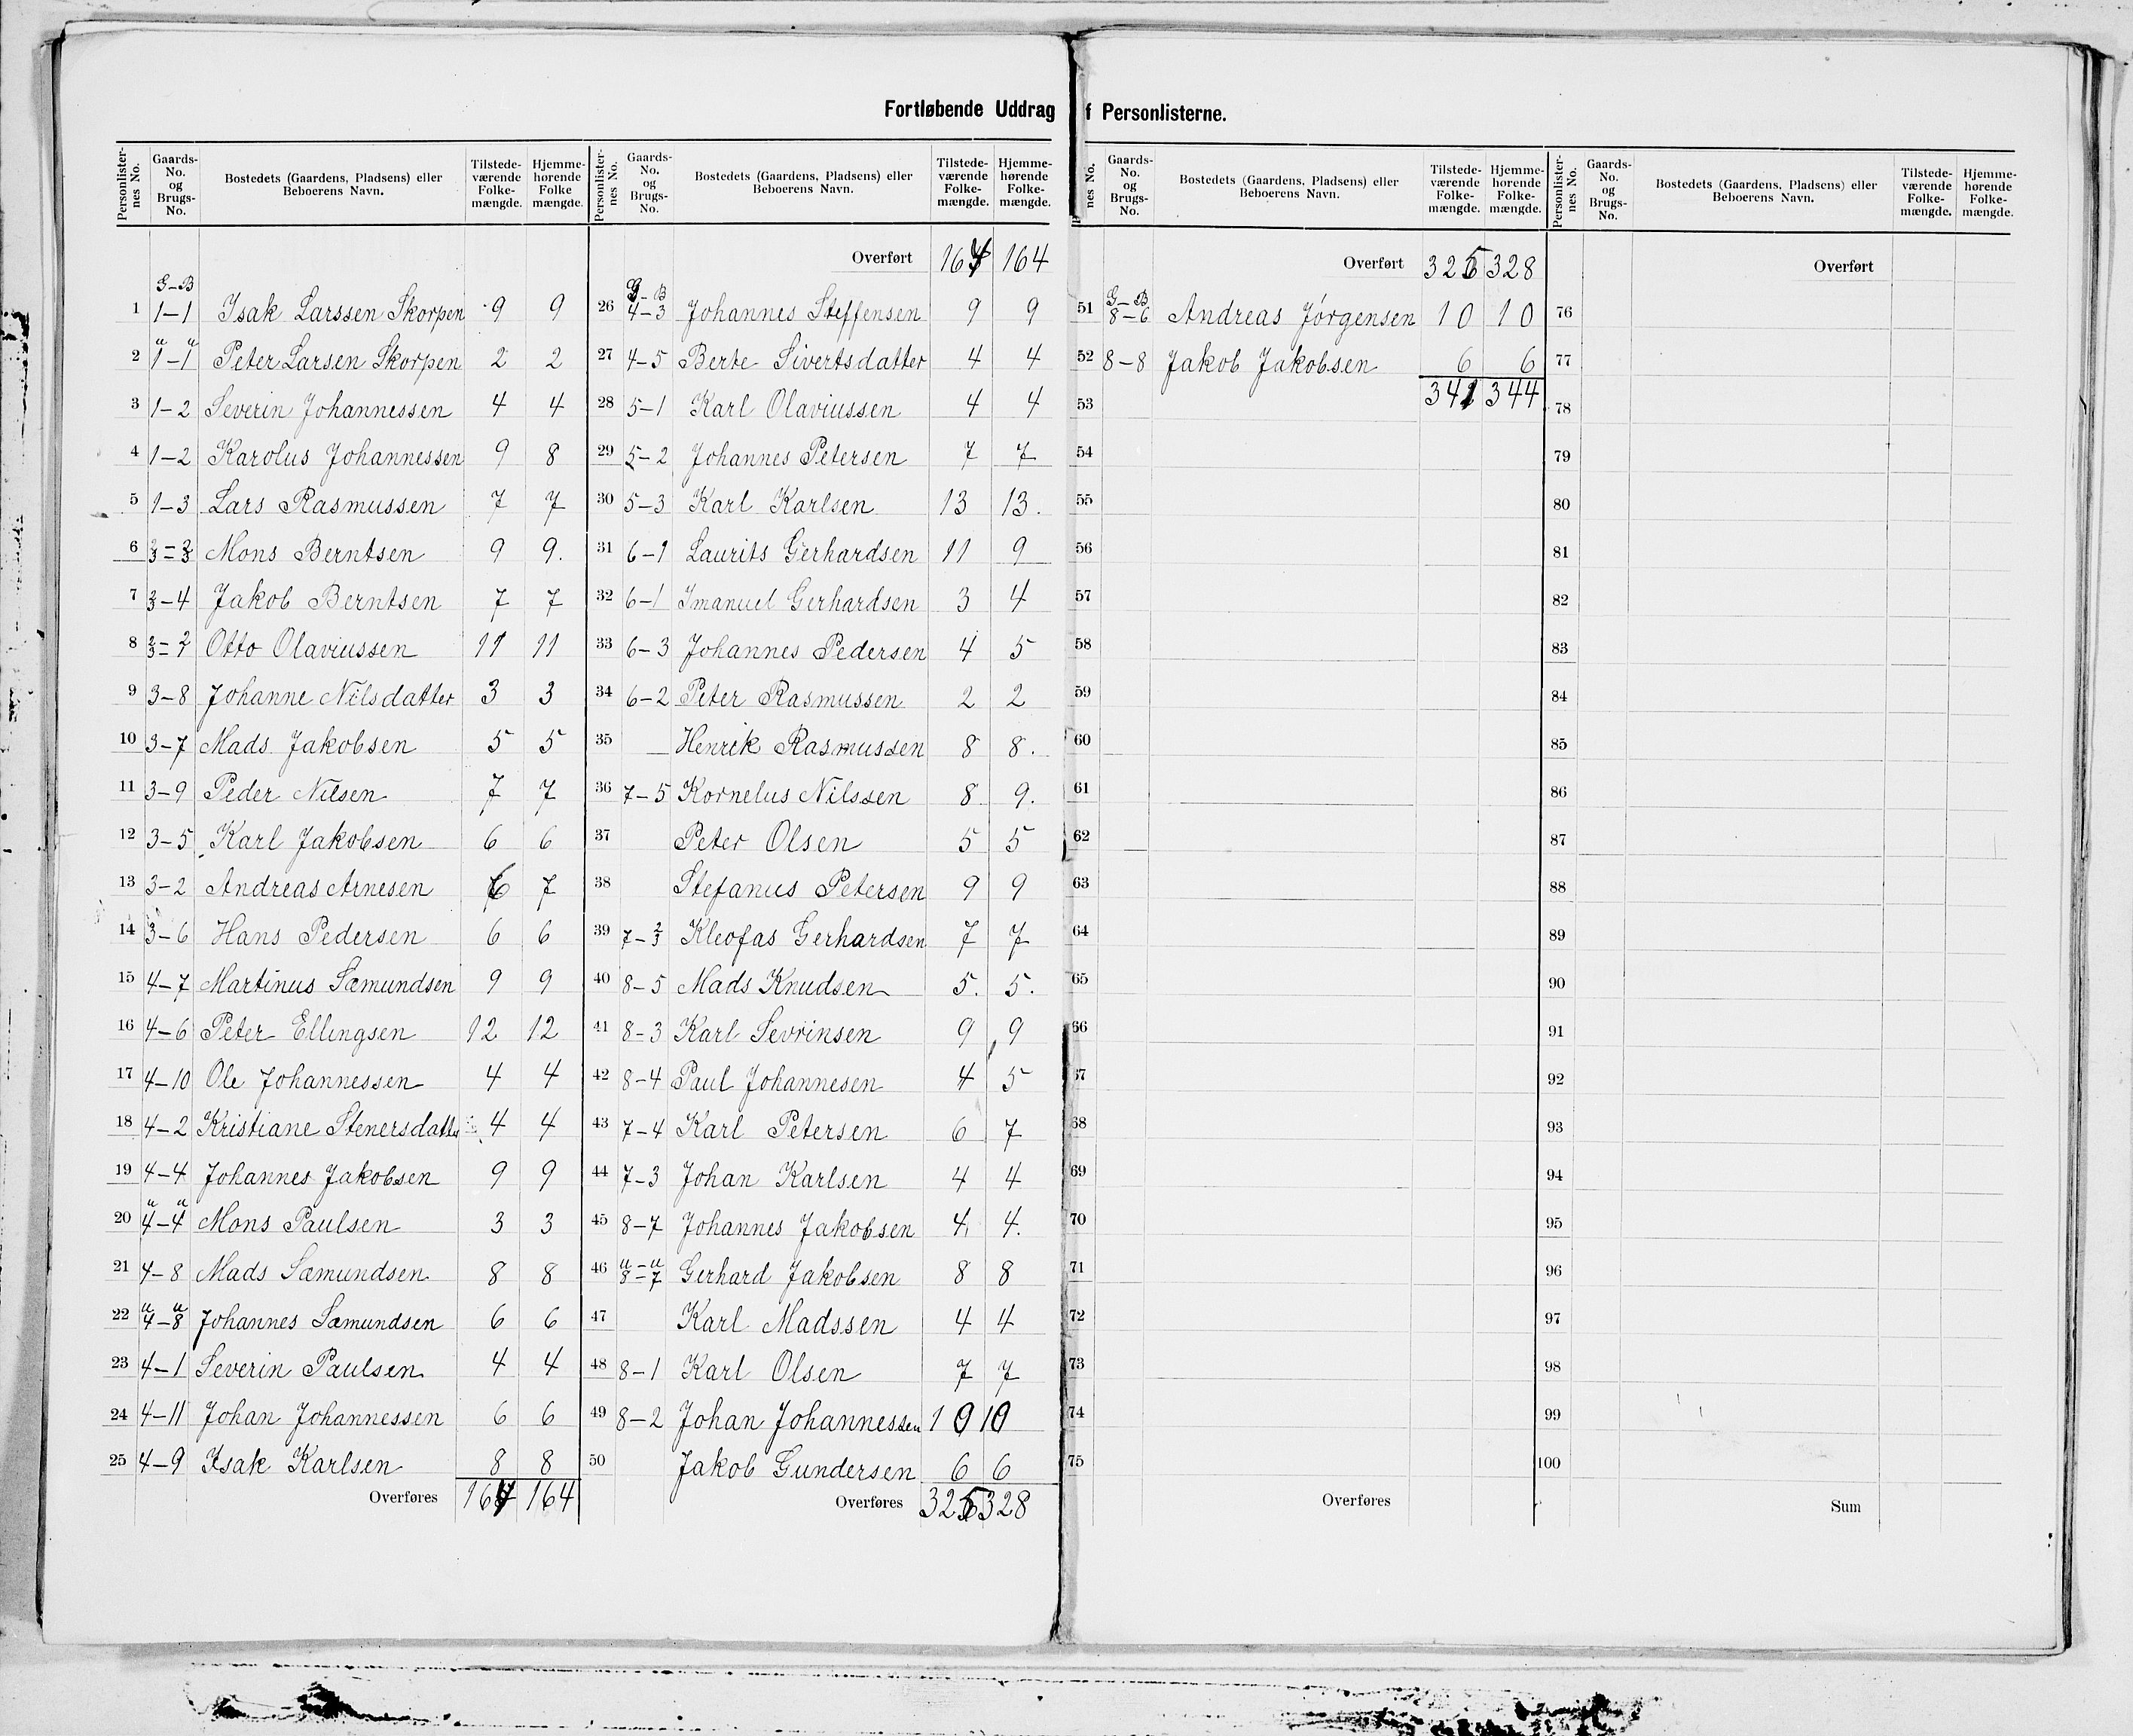 Fortløbende Uddrag f Personlisterne.
Personlister-nes No. Gaards-No. og Brugs-No. Bostedets (Gaardens, Pladsens) eller Beboerens Navn. Tilstede-værende Folke-mængde. Hjemme-hørende Folke mængde.
G-B
1 1-1 Isak Larssen Skorpen 9 9
2 1-1 Peter Larsen Skorpen 2 2
3 1-2 Severin Johannessen 4 4
4 1-2 Karolus Johannessen 9 8
5 1-3 Lars Rasmussen 7 7
6 Mons Berntsen 9 9.
7 3-4 Jakob Berntsen 7 7
8 Otto Olaviussen 11 11
9 3-8 Johanne Nilsdatter 3 3
10 3-7 Mads Jakobsen 5 5
11 3-9 Peder Nilsen 7 7
12 3-5 Karl Jakobsen 6 6
13 3-2 Andreas Arnesen 6 7
14 3-6 Hans Pedersen 6 6
15 4-7 Martinus Sæmundsen 9 9
16 4-6 Peter Ellingsen 12 12
17 4-10 Ole Johannessen 4 4
18 4-2 Kristiane Stenersdatter 4 4
19 4-4 Johannes Jakobsen 9 9
20 4-4 Mons Paulsen 3 3
21 4-8 Mads Sæmundsen 8 8
22 4-8 Johannes Sæmundsen 6 6
23 4-1 Severin Paulsen 4 4
24 4-11 Johan Johannessen 6 6
25 4-9 Isak Karlsen 8 8
Overføres 164 164
Personlister-nes No. Gaards-No. og Brugs-No. Bostedets (Gaardens, Pladsens) eller Beboerens Navn. Tilstede-værende Folke-mængde. Hjemme-hørende Folke-mængde.
Overført 164 164
G-B
26 4-3 Johannes Steffensen 9 9
27 4-5 Berte Sivertsdatter 4 4
28 5-1 Karl Olaviussen 4 4
29 5-2 Johannes Petersen 7 7
30 5-3 Karl Karlsen 13 13.
31 6-1 Laurits Gerhardsen 11 9
32 6-1 Imanuel Gerhardsen 3 4
33 6-3 Johannes Pedersen 4 5
34 6-2 Peter Rasmussen 2 2
35 — Henrik Rasmussen 8 8.
36 7-5 Kornelus Nilssen 8 9.
37 Peter Olsen 5 5
38 Stefanus Petersen 9 9
39 7-2/3 Kleofas Gerhardsen 7 7
40 8-5 Mads Knudsen 5. 5.
41 8-3 Karl Sevrinsen 9 9
42 8-4 Paul Johannesen 4 5
43 7-4 Karl Petersen 6 7
44 7-3 Johan Karlsen 4 4
45 8-7 Johannes Jakobsen 4 4.
46 8-7 Gerhard Jakobsen 8 8
47 Karl Madssen 4 4
48 8-1 Karl Olsen 7 7
49 8-2 Johan Johannessen 10 10
50 Jakob Gundersen 6 6
Overføres 325 328
nes No. Gaards-No. og Brugs-No. Bostedets (Gaardens, Pladsens) eller Beboerens Navn. Tilstede-værende Folke-mængde. Hjemme-hørende Folke-mængde.
Overført 325 328
G-B
51 8-6 Andreas Jørgensen 10 10
52 8-8 Jakob Jakobsen 6 6
53 341 344
54
55
56
57
58
59
60
61
62
63
64
65
66
67
68
69
70
71
72
73
74
75
Overføres
Personlister-nes No. Gaards-No. og Brugs-No. Bostedets (Gaardens, Pladsens) eller Beboerens Navn. Tilstede-værende Folke-mængde. Hjemme-hørende Folke-mængde.
Overført
76
77
78
79
80
81
82
83
84
85
86
87
88
89
90
91
92
93
94
95
96
97
98
99
100
Sum